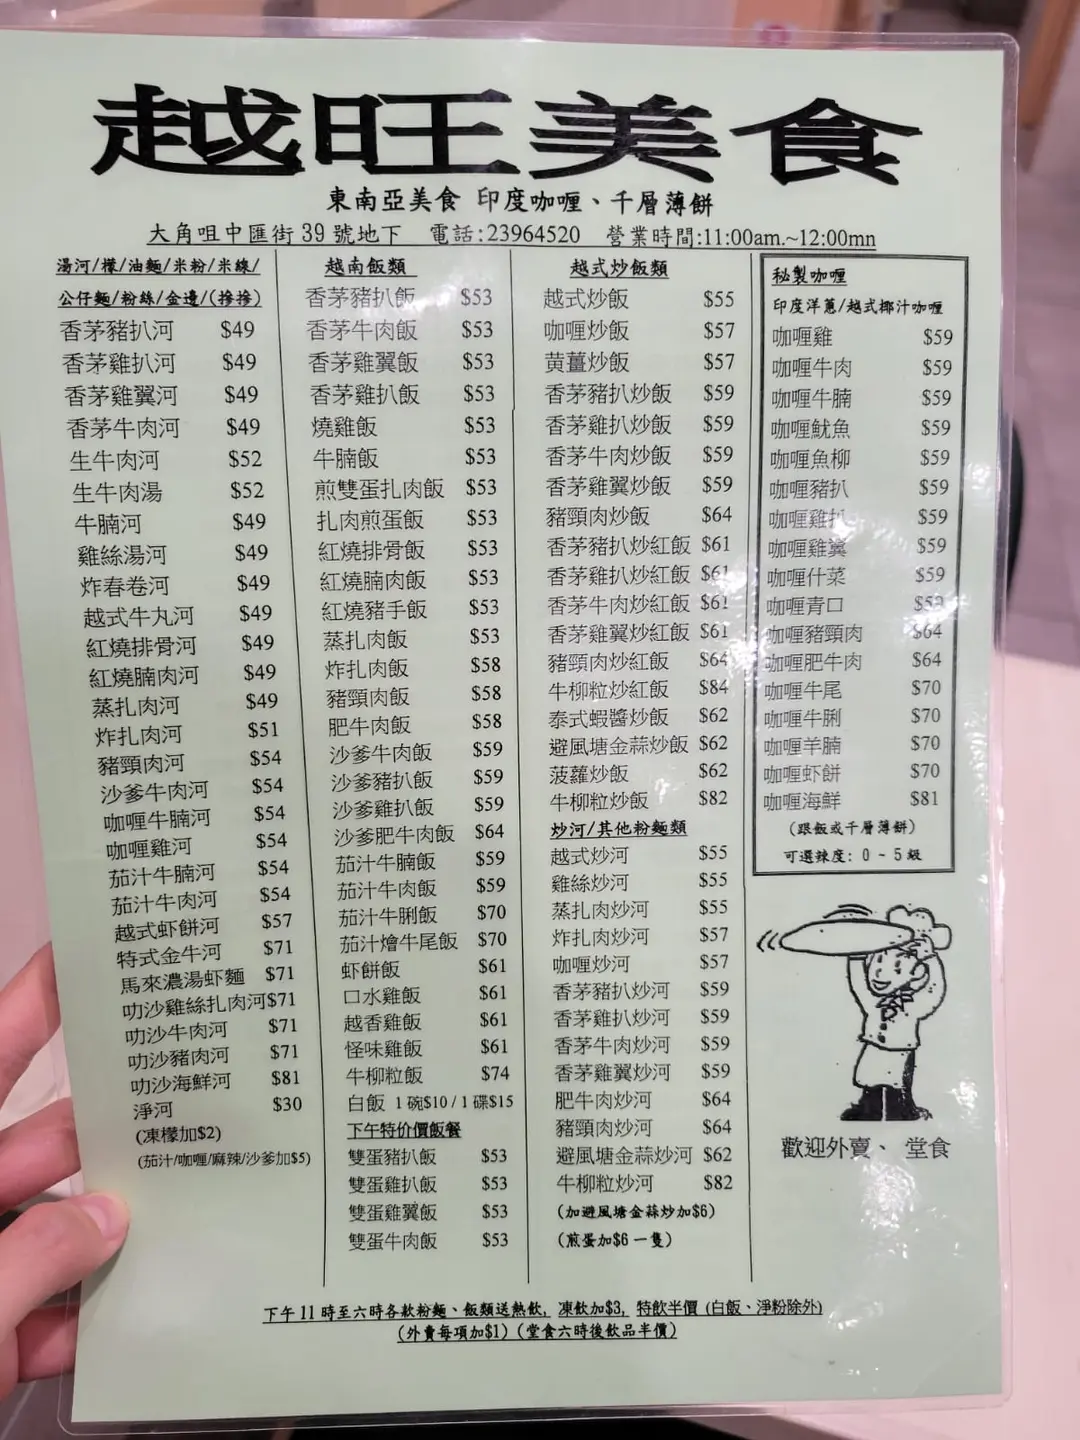 越旺美食
東南亞美食 印度咖喱、千層薄餅
大角咀中匯街 39 號地下 電話:23964520 營業時間:11:00am.~12:00mn
湯河/檬/油麵/米粉/米線/
公仔麵/粉絲/金邊/(摻摻)
香茅豬扒河 $49
香茅雞扒河 $49
香茅雞翼河 $49
香茅牛肉河 $49
生牛肉河 $52
生牛肉湯 $52
牛腩河 $49
雞絲湯河 $49
炸春卷河 $49
越式牛丸河 $49
紅燒排骨河 $49
紅燒腩肉河 $49
蒸扎肉河 $49
炸扎肉河 $51
豬頸肉河 $54
沙爹牛肉河 $54
咖喱牛腩河 $54
咖喱雞河 $54
茄汁牛腩河 $54
茄汁牛肉河 $54
越式虾餅河 $57
特式金牛河 $71
馬來濃湯虾麵 $71
叻沙雞絲扎肉河 $71
叻沙牛肉河 $71
叻沙豬肉河 $71
叻沙海鮮河 $81
淨河 $30
(凍檬加$2)
(茄汁/咖喱/麻辣/沙爹加$5)
越南飯類
香茅豬扒飯 $53
香茅牛肉飯 $53
香茅雞翼飯 $53
香茅雞扒飯 $53
燒雞飯 $53
牛腩飯 $53
煎雙蛋扎肉飯 $53
扎肉煎蛋飯 $53
紅燒排骨飯 $53
紅燒腩肉飯 $53
紅燒豬手飯 $53
蒸扎肉飯 $53
炸扎肉飯 $58
豬頸肉飯 $58
肥牛肉飯 $58
沙爹牛肉飯 $59
沙爹豬扒飯 $59
沙爹雞扒飯 $59
沙爹肥牛肉飯 $64
茄汁牛腩飯 $59
茄汁牛肉飯 $59
茄汁牛脷飯 $70
茄汁燴牛尾飯 $70
虾餅飯 $61
口水雞飯 $61
越香雞飯 $61
怪味雞飯 $61
牛柳粒飯 $74
白飯 1 碗$10 / 1 碟$15
下午特价價飯餐
雙蛋豬扒飯 $53
雙蛋雞扒飯 $53
雙蛋雞翼飯 $53
雙蛋牛肉飯 $53
越式炒飯類
越式炒飯 $55
咖喱炒飯 $57
黄薑炒飯 $57
香茅豬扒炒飯 $59
香茅雞扒炒飯 $59
香茅牛肉炒飯 $59
香茅雞翼炒飯 $59
豬頸肉炒飯 $64
香茅豬扒炒紅飯 $61
香茅雞扒炒紅飯 $61
香茅牛肉炒紅飯 $61
香茅雞翼炒紅飯 $61
豬頸肉炒紅飯 $64
牛柳粒炒紅飯 $84
泰式蝦醬炒飯 $62
避風塘金蒜炒飯 $62
菠蘿炒飯 $62
牛柳粒炒飯 $82
炒河/其他粉麵類
越式炒河 $55
雞絲炒河 $55
蒸扎肉炒河 $55
炸扎肉炒河 $57
咖喱炒河 $57
香茅豬扒炒河 $59
香茅雞扒炒河 $59
香茅牛肉炒河 $59
香茅雞翼炒河 $59
肥牛肉炒河 $64
豬頸肉炒河 $64
避風塘金蒜炒河 $62
牛柳粒炒河 $82
(加避風塘金蒜炒加$6)
(煎蛋加$6 一隻)
秘製咖喱
印度洋蔥/越式椰汁咖喱
咖喱雞 $59
咖喱牛肉 $59
咖喱牛腩 $59
咖喱魷魚 $59
咖喱魚柳 $59
咖喱豬扒 $59
咖喱雞扒 $59
咖喱雞翼 $59
咖喱什菜 $59
咖喱青口
咖喱豬頸肉 $64
咖喱肥牛肉 $64
咖喱牛尾 $70
咖喱牛脷 $70
咖喱羊腩 $70
咖喱虾餅 $70
咖喱海鮮 $81
(跟飯或千層薄餅)
可選辣度: 0 ~ 5 級
歡迎外賣、 堂食
下午 11 時至六時各款粉麵、飯類送熱飲, 凍飲加$3, 特飲半價 (白飯、淨粉除外)
(外賣每項加$1) (堂食六時後飲品半價)